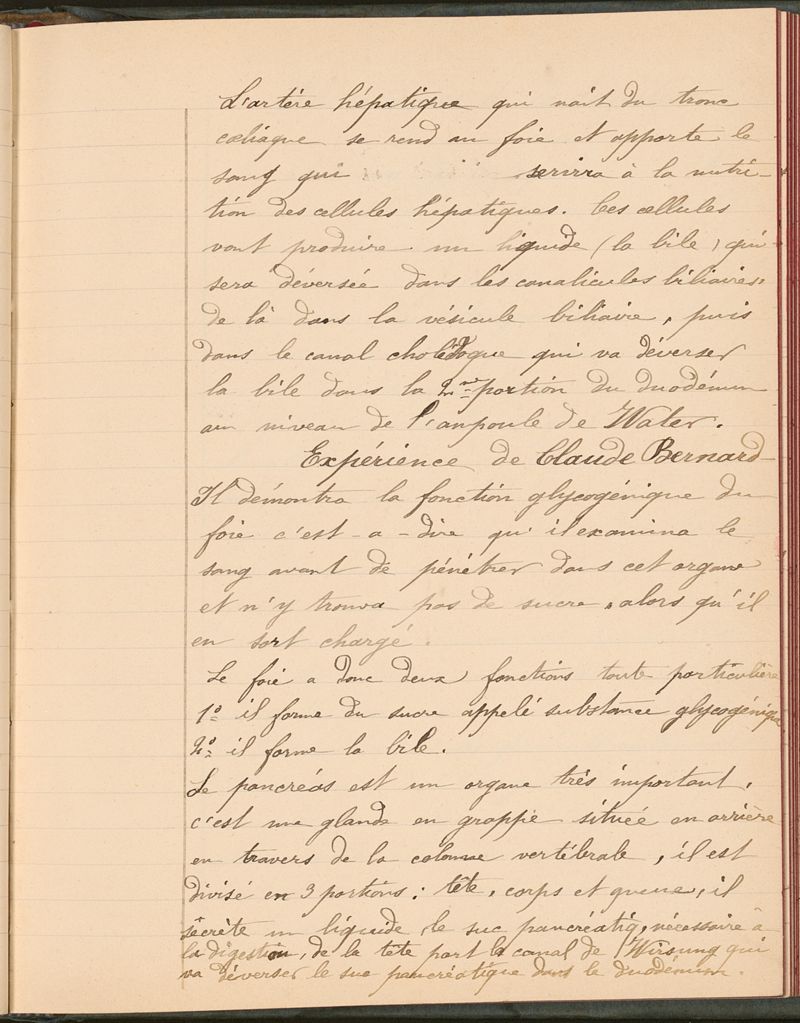 L'artère hépatique qui nait du tronc
cœliaque se rend au foie et apporte le
sang qui servira à la nutri-
tion des cellules hépatiques. Ces cellules
vont produire un liquide (la bile) qui
sera déversée dans les canalicules biliaires,
de là dans la vésicule biliaire, puis
dans le canal cholédoque qui va déverser
la bile dans la 2me portion du duodénum
au niveau de l'ampoule de Water.
Expérience de Claude Bernard
Il démontra la fonction glycogénique du
foie c'est-a-dire qu'il examina le
sang avant de pénétrer dans cet organe
et n'y trouva pas de sucre, alors qu'il
en sort chargé.
Le foie a donc deux fonctions toute particulière
1o il forme du sucre appelé substance glycogénique
2o il forme la bile.
Le pancréas est un organe très important,
c'est une glande en grappe située en arrière
en travers de la colonne vertébrale, il est
divisé en 3 portions : tête, corps et queue, il
sécrète un liquide le suc pancréatiq, nécessaire à
la digestion, de la tête part le canal de Wirsung qui
va déverser le suc pancréatique dans le duodénum.